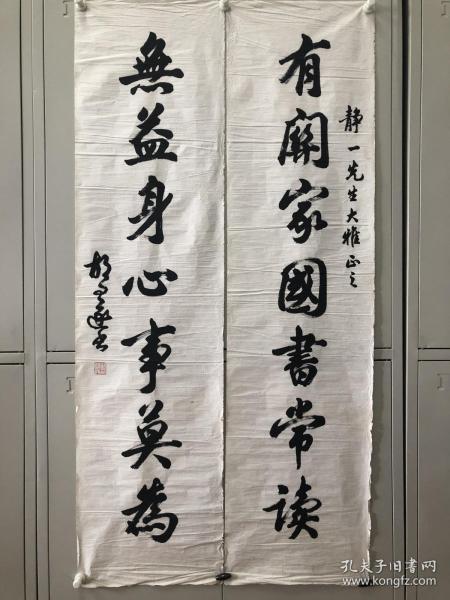 静一先生大雅正之
有關家國書常读
無益身心事莫為
孔夫子旧书网
www.kongfz.com